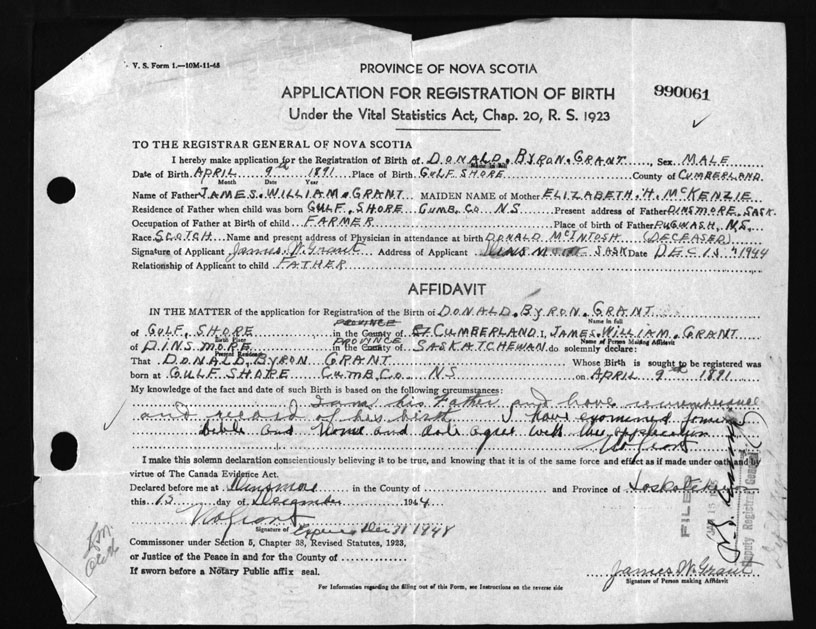 V. S. Form 1.—10M-11-43
PROVINCE OF NOVA SCOTIA
APPLICATION FOR REGISTRATION OF BIRTH
990061
Under the Vital Statistics Act, Chap. 20, R. S. 1923
TO THE REGISTRAR GENERAL OF NOVA SCOTIA
I hereby make application for the Registration of Birth of DONALD. BYRON. GRANT, Sex MALE
Name in full
Date of Birth APRIL 9th 1891 Place of Birth GULF SHORE County of CUMBERLAND
Month Date Year
Name of Father JAMES. WILLIAM. GRANT MAIDEN NAME of Mother ELIZABETH. H. McKENZIE
Residence of Father when child was born GULF. SHORE CUMB. CO. NS Present address of Father DINSMORE. SASK.
Occupation of Father at Birth of child FARMER Place of birth of Father PUGWASH, N.S.
Race SCOTCH Name and present address of Physician in attendance at birth DONALD McINTOSH (DECEASED)
Signature of Applicant James W. Grant Address of Applicant DINSMORE SASK Date DEC 15 1944
Relationship of Applicant to child FATHER
AFFIDAVIT
IN THE MATTER of the application for Registration of the Birth of DONALD. BYRON. GRANT
Name in full
of GULF. SHORE in the County of CUMBERLAND I, JAMES. WILLIAM. GRANT
Birth Place Name of Person Making Affidavit
of DINSMORE PROVINCE in the County of SASKATCHEWAN do solemnly declare:
Present Residence
That DONALD BYRON GRANT Whose Birth is sought to be registered was
born at GULF SHORE CUMB. CO. NS on APRIL 9th 1891
My knowledge of the fact and date of such Birth is based on the following circumstances:
I am his Father and have remembrance
and record of his birth I have examined family
bible and Name and date agree with the application
I make this solemn declaration conscientiously believing it to be true, and knowing that it is of the same force and effect as if made under oath and by
virtue of The Canada Evidence Act.
Declared before me at Dinsmore in the County of and Province of Saskatchewan
this 15 day of December 1944
Signature of Expires Dec 31 1948
Commissioner under Section 5, Chapter 38, Revised Statutes, 1923,
or Justice of the Peace in and for the County of
If sworn before a Notary Public affix seal.
James W. Grant
Signature of Person making Affidavit
For Information regarding the filling out of this Form, see Instructions on the reverse side
FILED
Deputy Registrar General